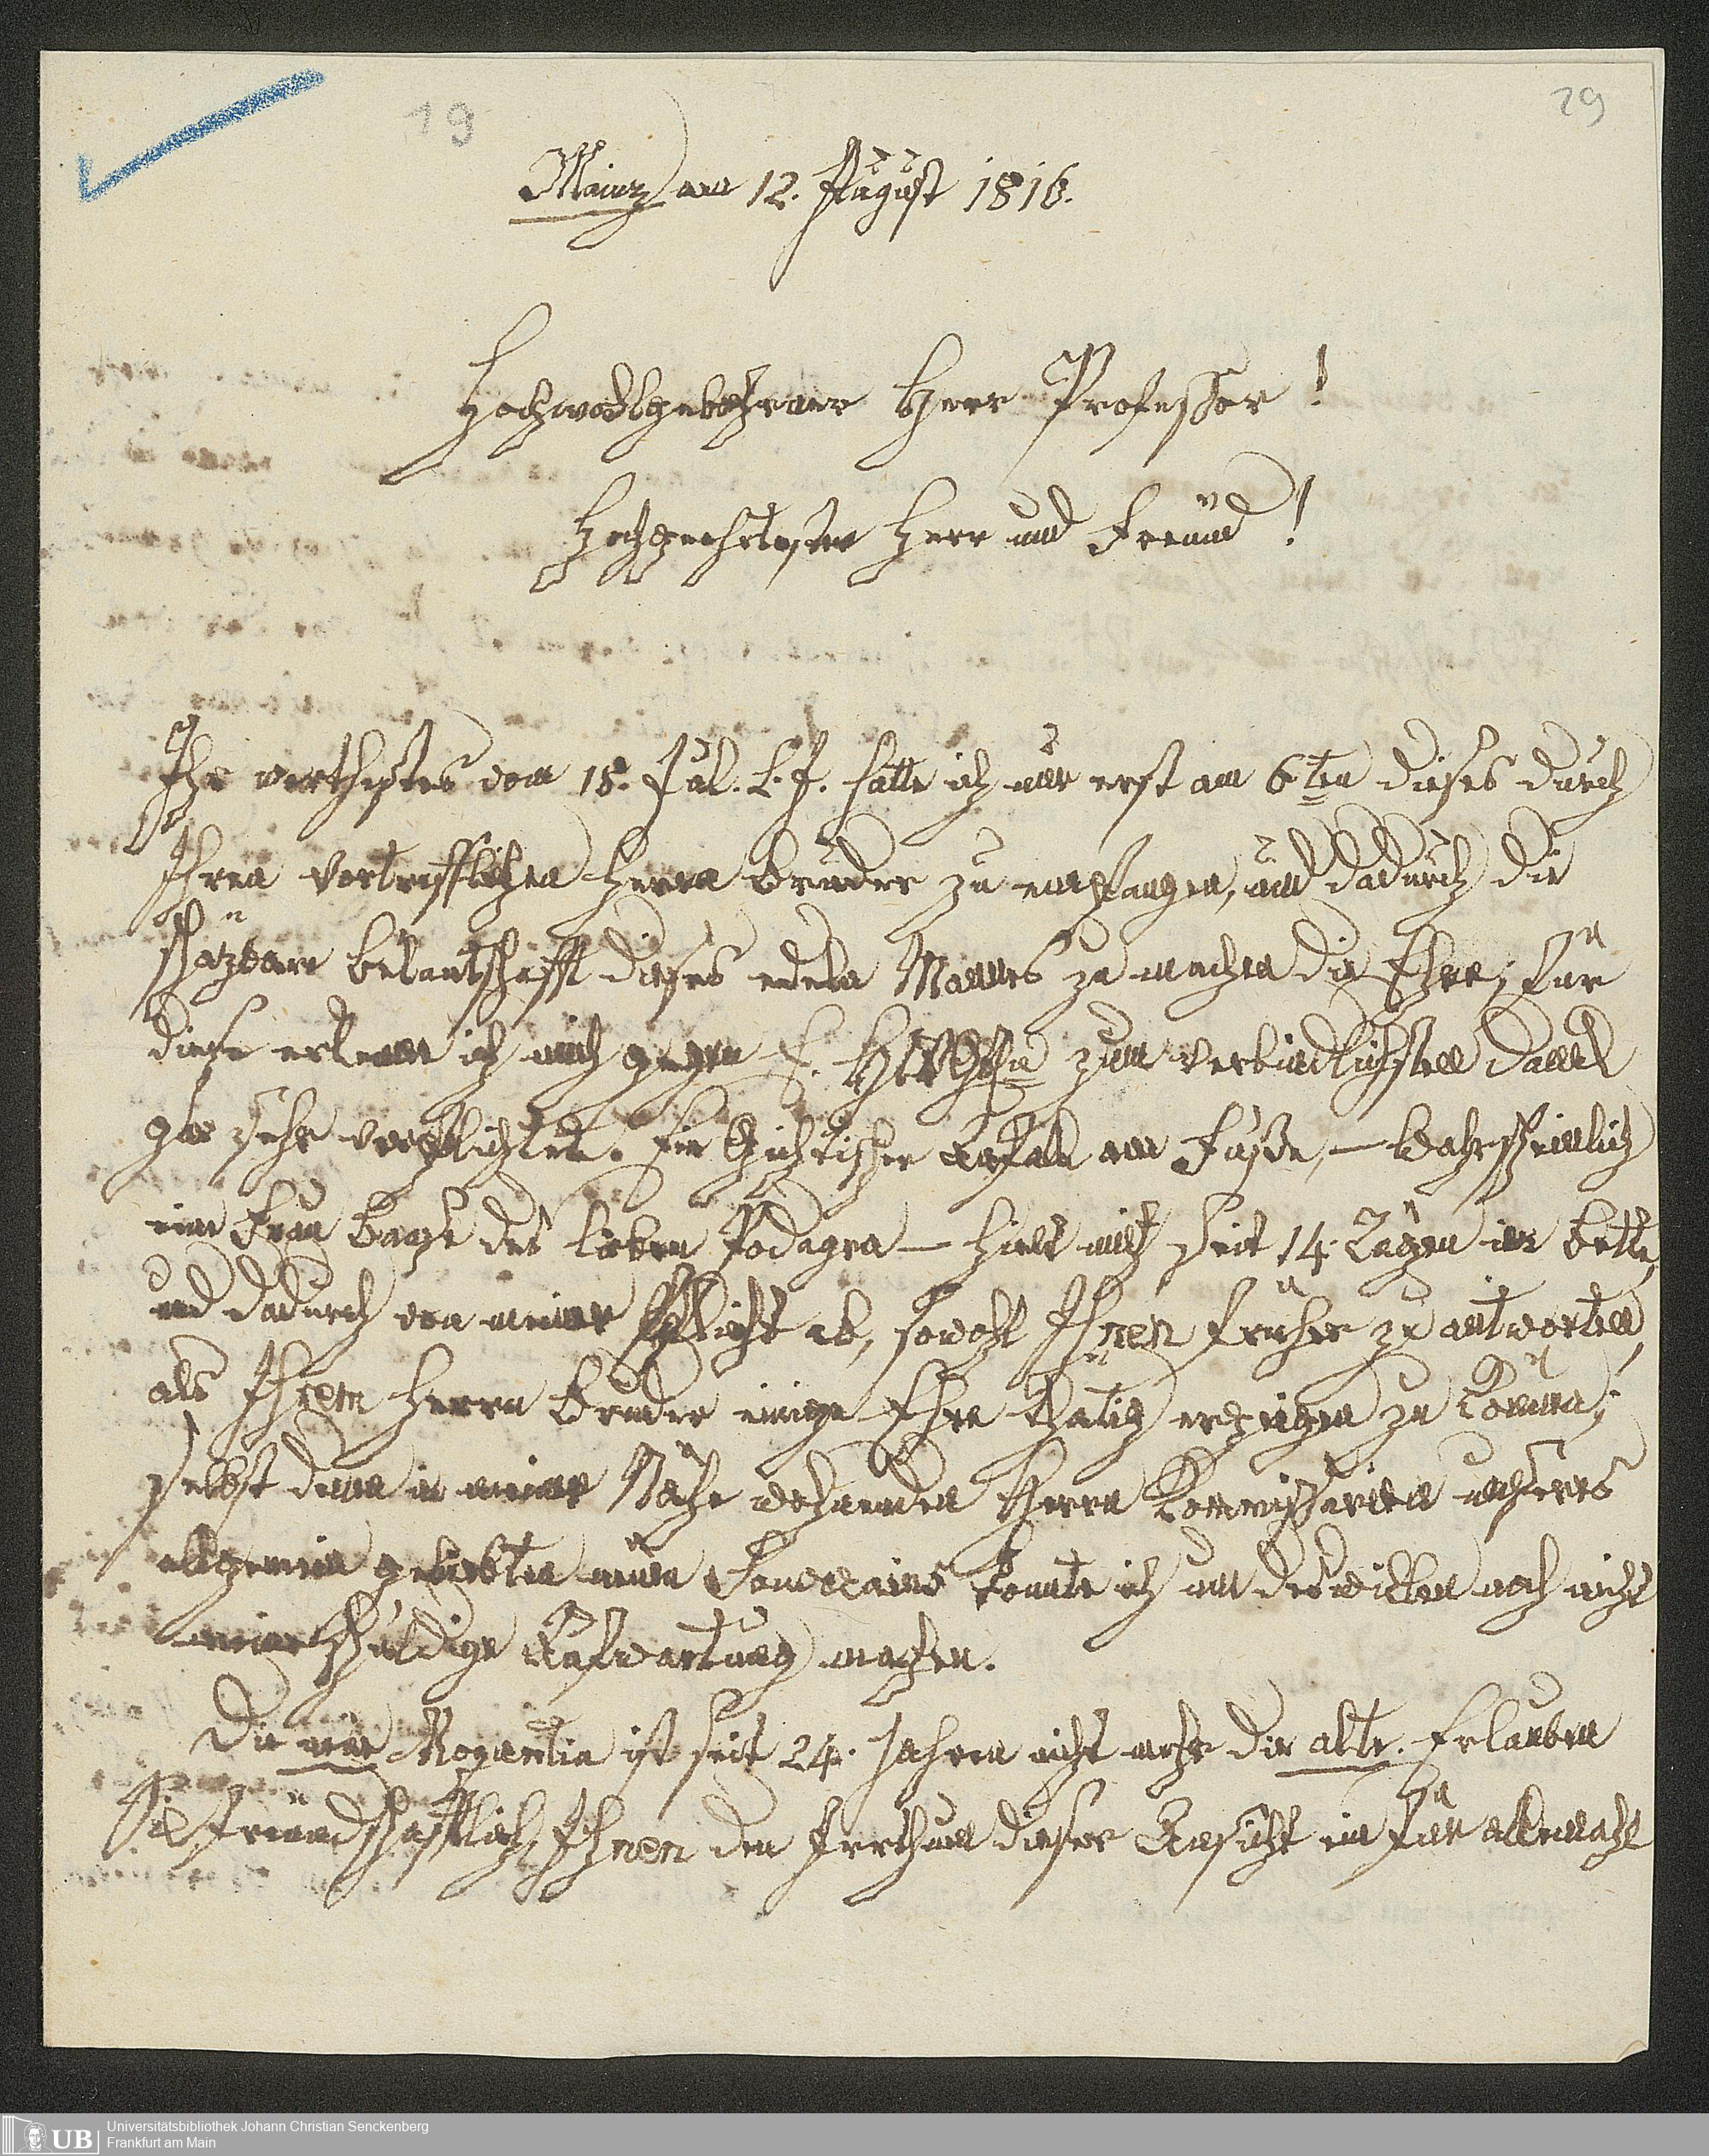 19
29
Mainz am 12. August 1816.
Hochwohlgebohrner Herr Professor!
Hochgeehrtester Herr und Freünd!
Ihr werthestes vom 18. Jul. l. J. hatte ich nur erst am 6ten dieses durch
Ihren vortrefflichen Herrn Bruder zu empfangen, und dadurch die
schäzbare bekantschafft dieses edeln Mannes zu machen die Ehre; für
diese erkenne ich mich gegen E. zum verbindlichsten Danck
gar sehr verpflichtet. Ein Gichtischer Anfall am Fuße, – Wahrscheinlich
eine Frau Baase des lieben Podagra – hielt mich seit 14. Tägen im Bette,
und dadurch von meiner Pflicht ab, sowohl Ihnen früher zu antworten,
als Ihrem Herrn Bruder einige Ehre thätig erzeigen zu könen;
selbst denen in meiner Nähe wohnenden Herrn Kommissarien unseres
allgemein geliebten neüen Souverains konnte ich um deswillen noch nicht
meine schuldige Aufwartung machen.
Die neüe Mogontia ist seit 24. Jahren nicht mehr die alte. Erlauben
Sie freündschafftlich, Ihnen den Irrthum dieser Ansicht ein für allemahl
UB
Universitätsbibliothek Johann Christian Senckenberg
Frankfurt am Main